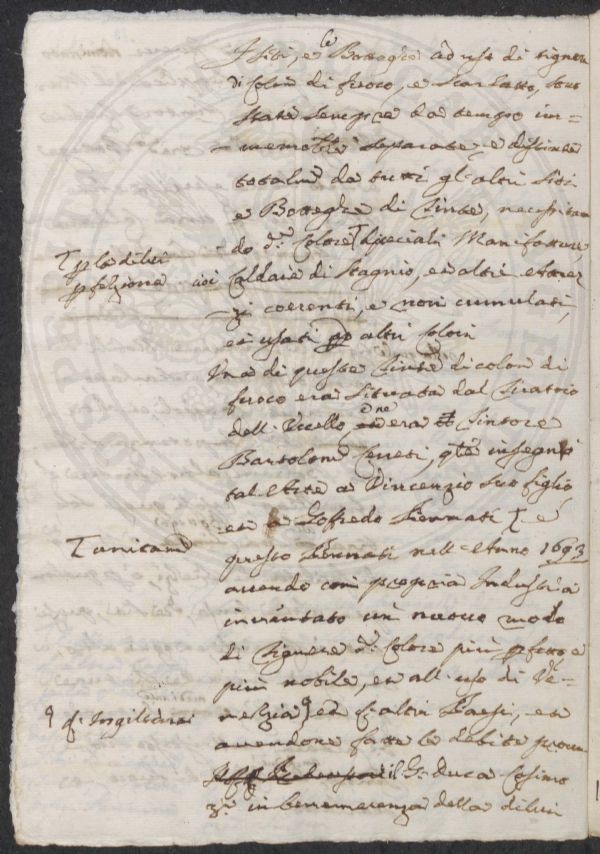 I siti, e le Botteghe ad uso di tignere
di Colori di fuoco, e Scarlatto, sono
state sempre da tempo im=
=memorabile separate, e distinte
totalm.e da tutti gl'altri Siti
e Botteghe di Tinte, necessitan
do d.o Colore speciali Manifatture,
p la di lui
pfezione
cioè Caldaie di Stagnio, et altri attrez
zi coerenti, e non cumulati,
et usati p altri Colori
Una di queste Tinte di colori di
fuoco era situata dal Tiratoio
dell'Uccello, ne era Tintore
Bartolom Ceneri, q.le insegnò
tal'Arte a Vincenzio suo figlio,
et a Goffredo Pennati e
unitam
questo Pennati nell'Anno 1693
avendo con propria Industria
inventato un nuovo modo
di tignere d.o Colore più pfetto e
più nobile, et all'uso di Ve=
nezia ed altri Paesi, et
d'Inghilterra
avendone fatte le debite prove
il G. Duca Cosimo
3.o in benemerenza della di lui